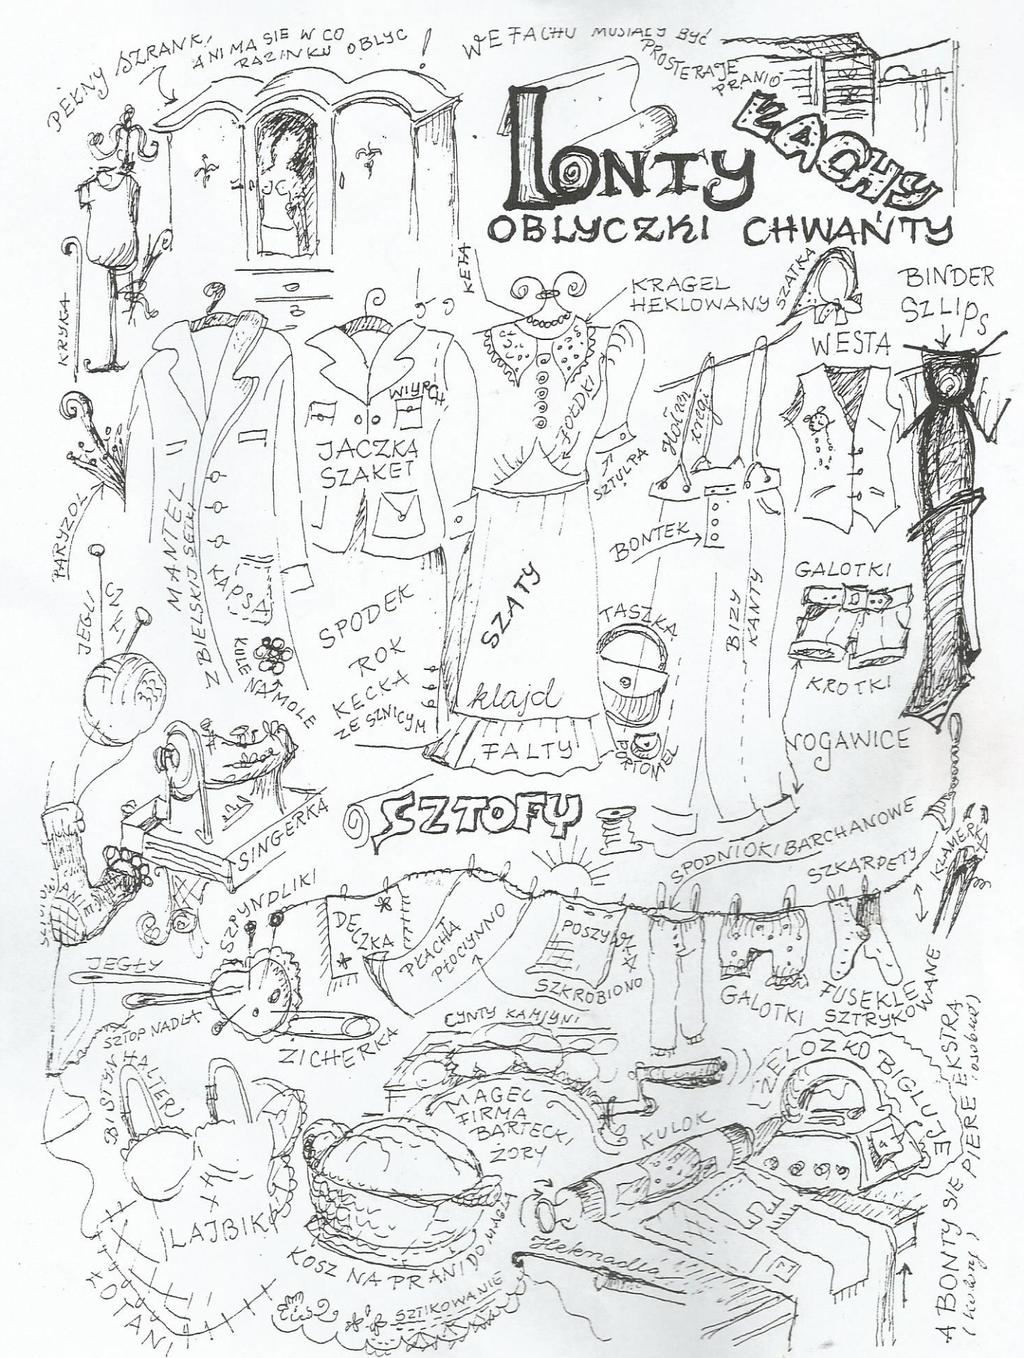 PEŁNY SZRANK,
A NI MA SIE W CO
RAZINKU OBLYC !
WE FACHU MUSIAŁY BYĆ
PROSTERAJE
PRANIO
LONTY
ŁACHY
OBLYCZKI CHWAŃTY
KRYKA
KETA
KRAGEL
HEKLOWANY
SZATKA
WESTA
BINDER
SZLIPS
PARYZOL
MANTEL
Z BIELSKIJ SEIKI
KAPSA
JACZKA
SZAKET
WIYRCH
FOŁDKI
SZTULPA
Hózen
tregi
BONTEK
BIZY
KANTY
GALOTKI
KROTKI
NOGAWICE
JEGLICZKI
KULE NA MOLE
SPODEK
ROK
KECKA
ZE SZNICYM
SZATY
klajd
FALTY
TASZKA
PORTOMEL
SINGERKA
SZTOFY
SPODNIOKI BARCHANOWE
SZKARPETY
KLAMERKI
SZPYNDLIKI
DECZKA
PŁACHTA
PŁOCIYNNO
POSZYWKA
SZKROBIONO
GALOTKI
FUSEKLE
SZTRYKOWANE
JEGŁY
SZTOPNADLA
ZICHERKA
BISTYNHALTER
LAJBIK
KOTANI
CYNTY KAMIYNI
MAGEL
FIRMA
BARTECKI
ZORY
KULOK
ZELOZKO BIGLUJE
KOSZ NA PRANI DO MAGLA
SZTIKOWANIE
Heknadla
A BONTY SIE PIERE EKSTRA
(kolory) (osobno)